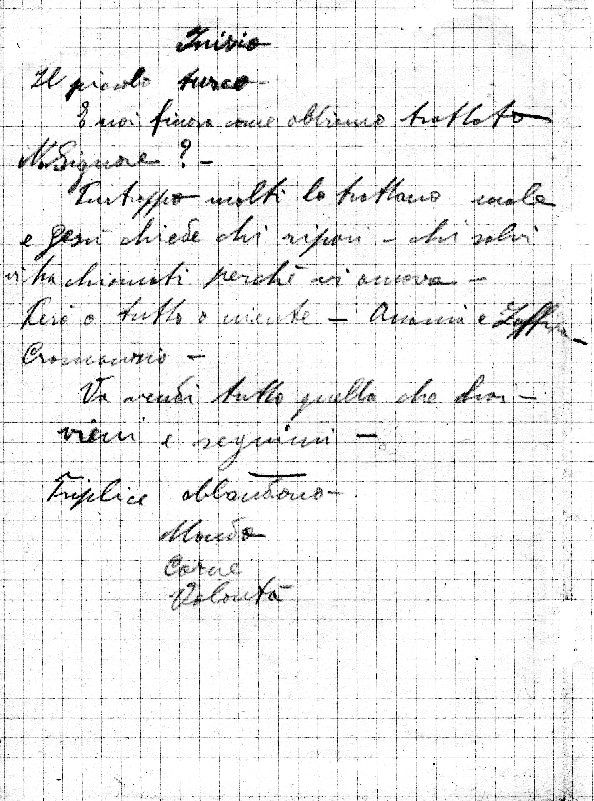 Inizio
Il piccolo turco
E noi finora come abbiamo trattato
N. Signore ? -
Purtroppo molti lo trattano male
e Gesù chiede chi ripari - chi salvi
vi ha chiamati perché vi amava -
Però o tutto o niente - Anania e Zaffira -
Va vendi tutto quello che hai -
vieni e seguimi -
Triplice abbandono -
Mondo
Carne
Volontà